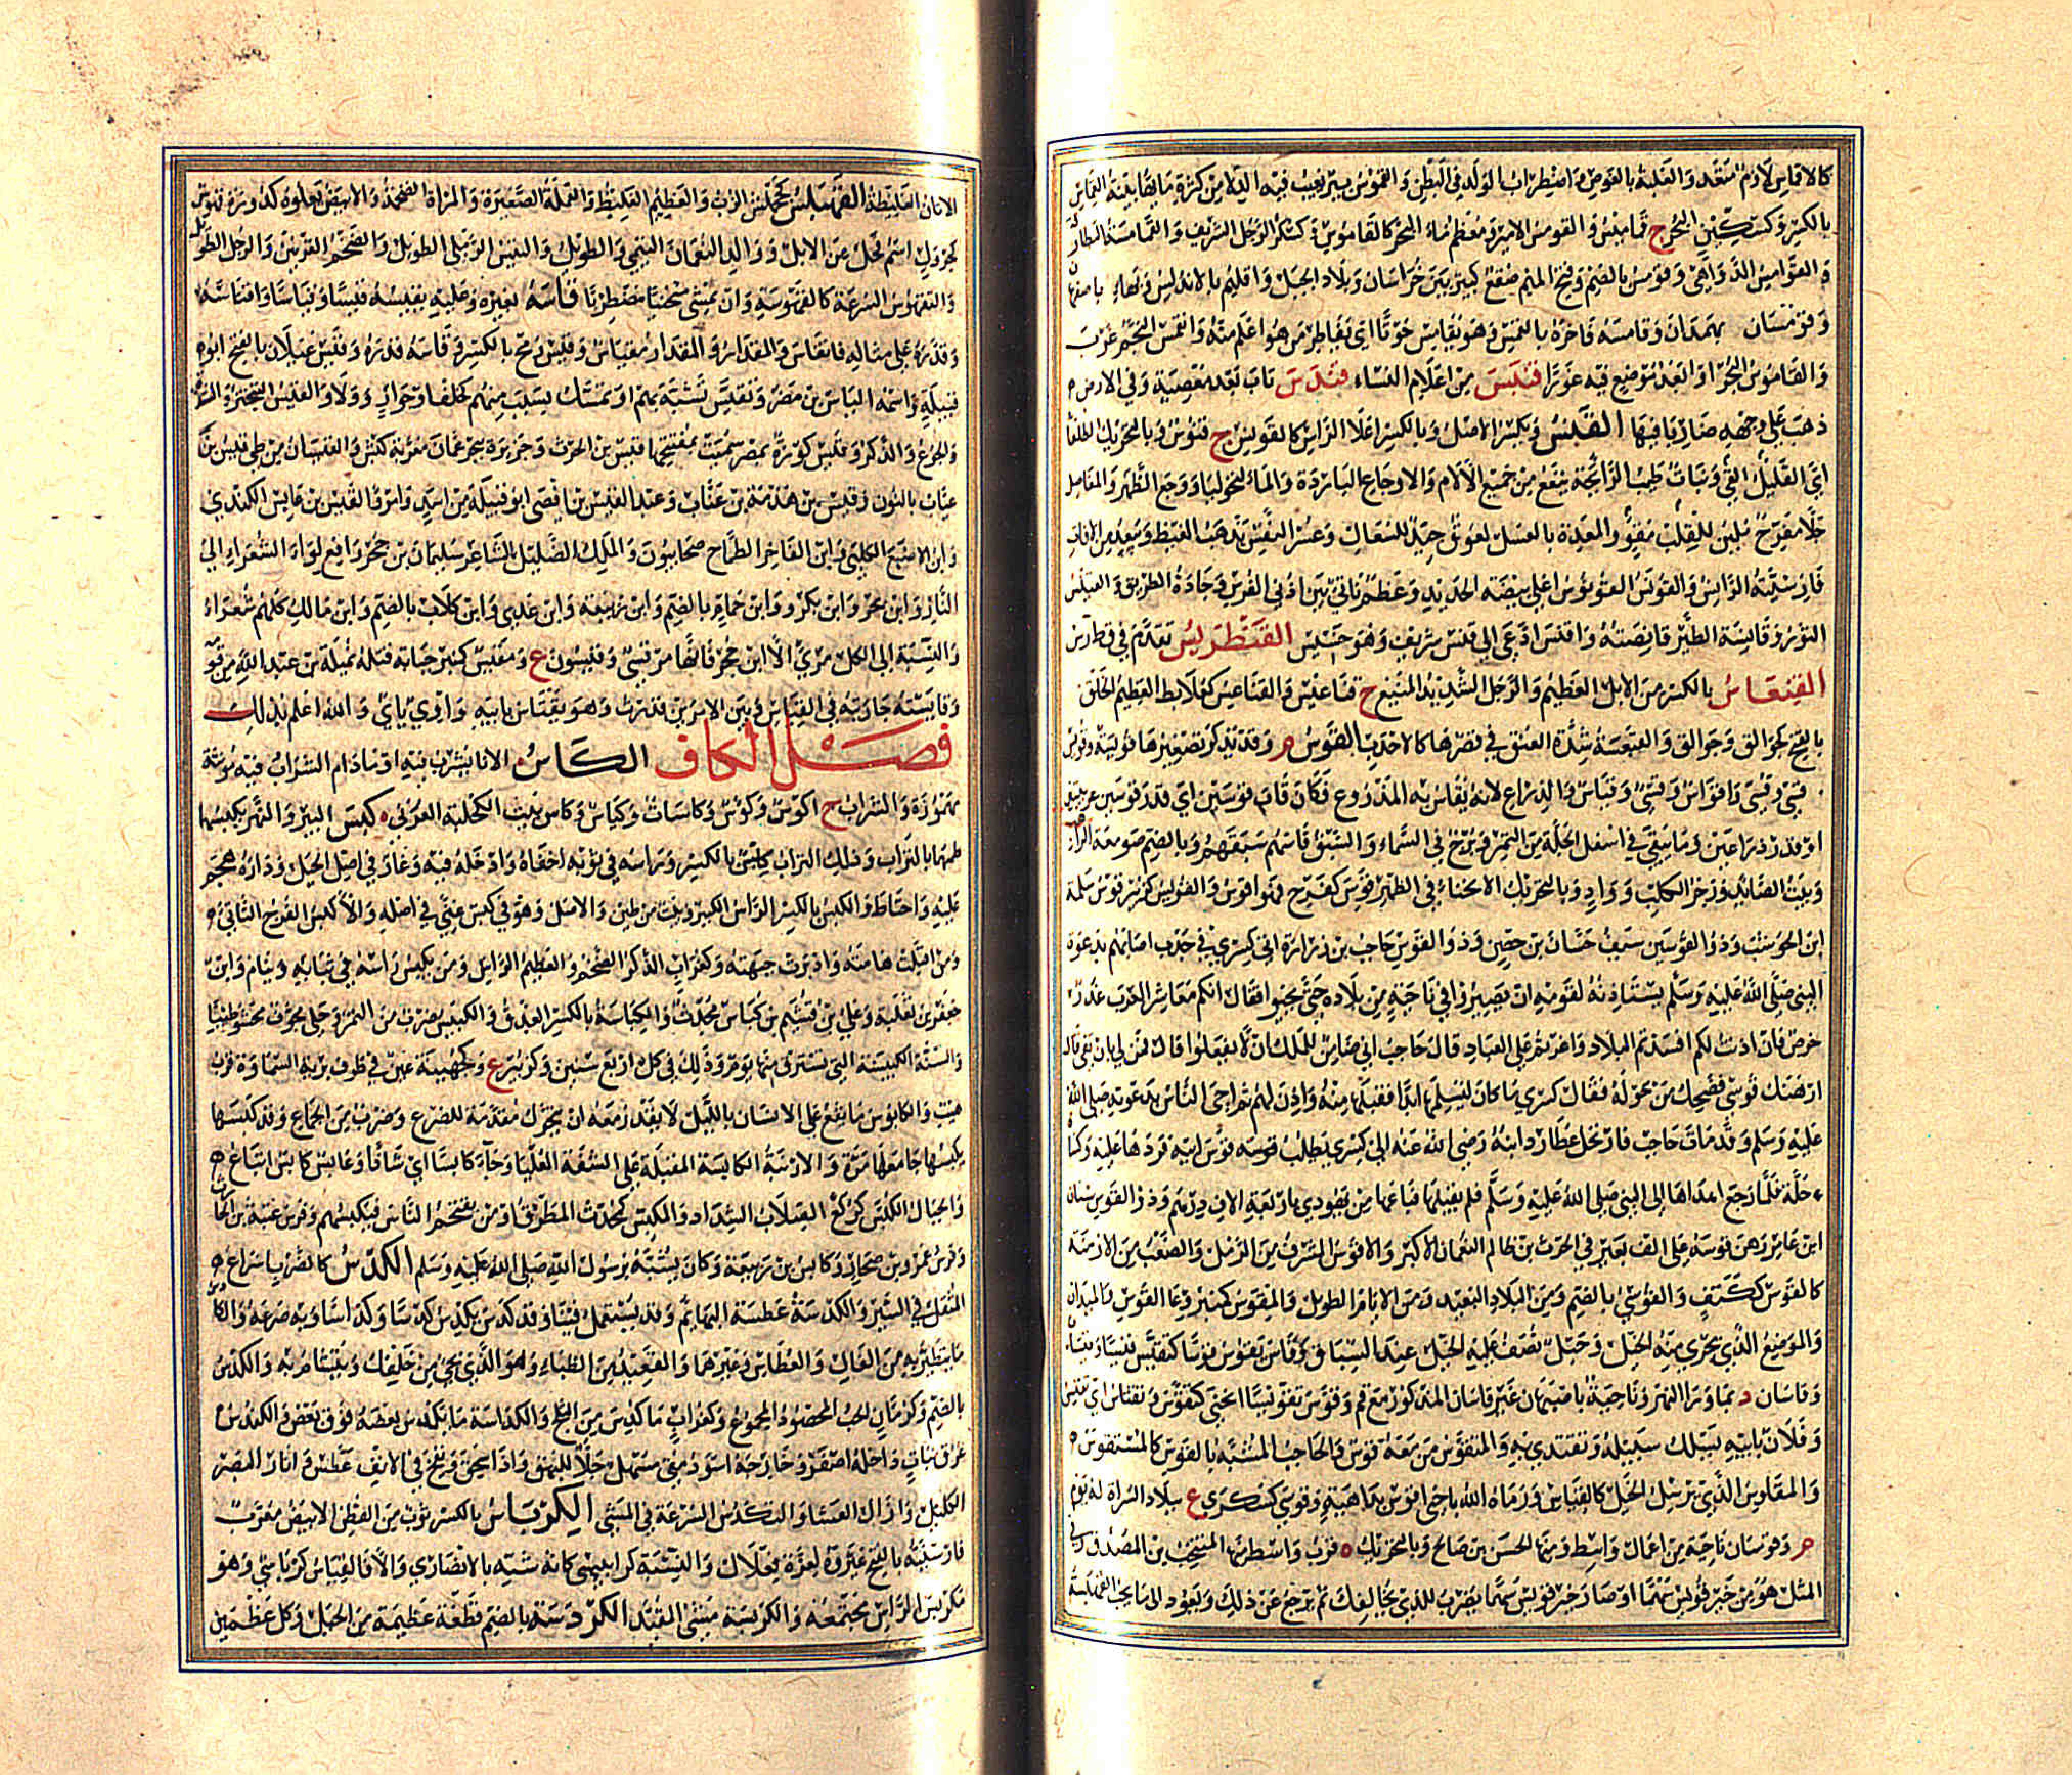 كالاقماس لازم متعد والغلبة بالغوص واضطراب الولد في البطن والقموس بئر تغيب فيه الدلاء من كثرة مائها بينة القماس
بالكسر وكسكين البحر ج قماميس والقومس الامير ومعظم ماء البحر كالقاموس وكسكر الرجل الشريف والقمامسة البطارقة
والقوامس الدواهي وقومس بالضم وفتح الميم صقع كبير بين خراسان وبلاد الجبل واقليم بالاندلس وة باصفهان
وقومسان بهمدان وقامسه فاخره بالقمس وهو يقامس حوتا اي يناظر من هو اعلم منه وانقمس النجم غرب
والقاموس البحر او ابعد موضع فيه غورا قنبس من اعلام النساء قندس تاب بعد معصية وفي الارض
ذهب على وجهه ضاربا فيها القنس ويكسر الاصل وبالكسر اعلا الراس كالقونس ج قنوس وبالتحريك الطلعا
اي القليل القي ونبات طيب الرائحة ينفع من جميع الآلام والاوجاع الباردة والماليخوليا ووجع الظهر والمفاصل
جلا مفرح ملين للقلب مقو والمعدة بالعسل لعوق جيد للسعال وعسر النفس يذهب الغيظ ويبعد من الآفات
فارسيته الراسن والقونس القونوس اعلى بيضة الحديد وعظم ناتئ بين اذني الفرس وجادة الطريق والقنس
الثور وقانسة الطير قانصته واقنس ادعى الى قنس شريف وهو خسيس القنطريس تقدم في قطرس
القنعاس بالكسر من الابل العظيم والرجل الشديد المنيع ج قناعيس والقناعس كعلابط العظيم الخلق
بالفتح كجوالق وجوالق والقنعسة شدة العنق في قصرها كالاحدب القوس م وقد يذكر تصغيرها قويسة وقويس
قسي وقسي واقواس وقسي وقياس والذراع لانه يقاس به المذروع فكان قاب قوسين اي قدر قوسين عربيتين
او قدر ذراعين وما يبقى في اسفل الجلة من التمر وبرج في السماء والسبق قاسهم سبقهم وبالضم صومعة الراهب
وبيت الصائد وزجر الكلب وواد وبالتحريك الانحناء في الظهر قوس كفرح فهو اقوس والقويس كزبير فرس سلمة
ابن الحوشب وذو القوسين سيف حسان بن حصن وذو القوس حاجب بن زرارة اتى كسرى في جدب اصابهم بدعوة
النبي صلى الله عليه وسلم يستاذنه لقومه ان يصيروا في ناحية من بلاده حتى يحيوا فقال انكم معاشر العرب غدر
حرص فان اذنت لكم افسدتم البلاد واغرتم على العباد قال حاجب اني ضامن للملك ان لا يفعلوا قال فمن لي بان تفي قال
ارهنك قوسي فضحك من حوله فقال كسرى ما كان ليسلمها ابدا فقبلها منه واذن لهم ثم احيى الناس بدعوته صلى الله
عليه وسلم وقد مات حاجب فارتحل عطارد ابنه رضي الله عنه الى كسرى يطلب قوس ابيه فردها عليه وكساه
حلة فلما رجع اهداها الى النبي صلى الله عليه وسلم فلم يقبلها فباعها من يهودي باربعة الاف درهم وذو القوس سنان
ابن عامر رهن قوسه على الف بعير في الحرث بن ظالم النعمان الاكبر والاقوس المشرف من الرمل والصعب من الازمنة
كالقوس ككتف والقوسي بالضم ومن البلاد البعيد ومن الايام الطويل والمقوس كمنبر وعا القوس والميدان
والموضع الذي تجري منه الخيل وحبل تصف عليه الخيل عند السباق وقاس يقوس قوسا كيقيس قيسا وقياسا
وقاسان د بما وراالنهر وناحية باصبهان غير قاسان المذكور مع قم وقوس تقويسا انحنى كتقوس ويقتاس اي يقيس
وفلان بابيه يسلك سبيله ويقتدي به والمتقوس من معه قوس والحاجب المشبه بالقوس كالمستقوس
والمقاوس الذي يرسل الخيل كالقياس ورماه الله باحنى اقوس بداهية وقوسى كسكرى ع ببلاد السراة له يوم
م وقوسان ناحية من اعمال واسط ومنها الحسن بن صالح وبالتحريك ة قرب واسط منها المنتخب بن المصدق وفي
المثل هو من خير قويس سهما او صار خير قويس سهما يضرب للذي يخالفك ثم يرجع عن ذلك ويعود الى ما يحب القهبلسة
الاتان الغليظة القهبلس كجحمرش الزب والعظيم الغليظ والقملة الصغيرة والمراة الضخمة والابيض تعلوه كدورة قهوس
كجرول اسم فحل من الابل ووالد النعمان التيمي والطويل والتيس الرملي الطويل والضخم القرنين والرجل الطويل
والتقهوس السرعة كالقهوسة وان تمشي منحنيا مضطربا قاسه بغيره وعليه يقيسه قيسا وقياسا واقتاسه
وقدره على مثاله فانقاس والمقدار مقياس وقيس رمح بالكسر وقاسه قدره وقيس عيلان بالفتح ابو
قبيلة واسمه الياس بن مضر وتقيس تشبه بهم او تمسك بسبب منهم كحلف او جوار وولاء والقيس التبختر والشدة
والجوع والذكر وقيس كورة بمصر سميت بمفتتحها قيس بن الحرث وجزيرة ببحر عمان معربة كيش والقيسان من طي قيس بن
عتاب بالنون وقيس بن هذمة بن عتاب وعبد القيس بن افصى ابو قبيلة من اسد وامرؤ القيس بن عابس الكندي
وابن الاصبغ الكلبي وابن الفاخر الطماح صحابيون والملك الضليل الشاعر سليمان بن حجر رافع لواء الشعراء الى
النار وابن بحر وابن بكر وابن حمام بالضم وابن ربيعة وابن عدي وابن كلاب بالضم وابن مالك كلهم شعراء
والنسبة الى الكل مرئي الا ابن حجر فانها مرقسي وقيسون ع ومقيس كمنبر حبابة قتله نميلة بن عبد الله من قومه
وقايسته جاريته في القياس وبين الامرين قدرت وهو يقتاس بابيه واوي يائي والله اعلم بذلك
فصل الكاف الكاس الانا يشرب فيه او مادام الشراب فيه مونثة
مهموزة والشراب ج اكوس وكؤوس وكاسات وكئاس وكاس بنت الكلحبة العرني كبس البير والنهر يكبسها
طمها بالتراب وذلك التراب كبس بالكسر وراسه في ثوبه اخفاه وادخله فيه وغار في اصل الجبل ودارة هجم
عليه واحتاط والكبس بالكسر الراس الكبير وبيت من طين والاصل وهو في كبس غنى في اصله والاكبس الفرج الناتئ
ومن اقبلت هامته وادبرت جبهته وكغراب الذكر الضخم والعظيم الراس ومن يكبس راسه في ثيابه وينام وابن
جعفر بن ثعلبة وعلي بن قسيم بن كباس محدث والكباسة بالكسر العذق والكبيس ضرب من التمر وحلي مجوف محشو طيبا
والسنة الكبيسة التي يسترق منها يوم وذلك في كل اربع سنين وكزبير ع وكجهينة عين في طرف برية السماوة قرب
هيت والكابوس ما يقع على الانسان بالليل لا يقدر معه ان يتحرك مقدمة للصرع وضرب من الجماع وقد كبسها
يكبسها جامعها مرة والارنبة الكابسة المقبلة على الشفة العليا وجاء كابسا اي شادا وعابس كابس اتباع
والجبال الكبس كركع الصلاب الشداد والمكبس كمحدث المطرق او من يقتحم الناس فيكبسهم وفرس عتيبة بن الحارث
وفرس عمرو بن صحار وكابس بن ربيعة وكان يشبه برسول الله صلى الله عليه وسلم الكدس كالضرب اسراع
المثقل في السير والكدسة عطسة البهائم وقد يستعمل فينا وقد كدس يكدس كدسا وكداسا وبه صرعه والكادس
ما يتطير به من الفال والعطاس وغيرهما والقعيد من الظباء وهو الذي يجيء من خلفك ويتشام به والكدس
بالضم وكرمان الحب المحصود المجموع وكغراب ما كدس من الثلج والكداسة ما يكدس بعضه فوق بعض والكندس
عروق نبات داخله اصفر وخارجه اسود مقيئ مسهل جلاء للبهق واذا سحق ونفخ في الانف عطس وانار البصر
الكليل وازال العشا والتكدس السرعة في المشي الكرباس بالكسر ثوب من القطن الابيض معرب
فارسيته بالفتح غيروه لعزة فعلال والنسبة كرابيسي كانه شبه بالانصاري والا فالقياس كرباسي وهو
مكربس الراس مجتمعه والكربسة مشي القيد الكردسة بالضم قطعة عظيمة من الخيل وكل عظمين